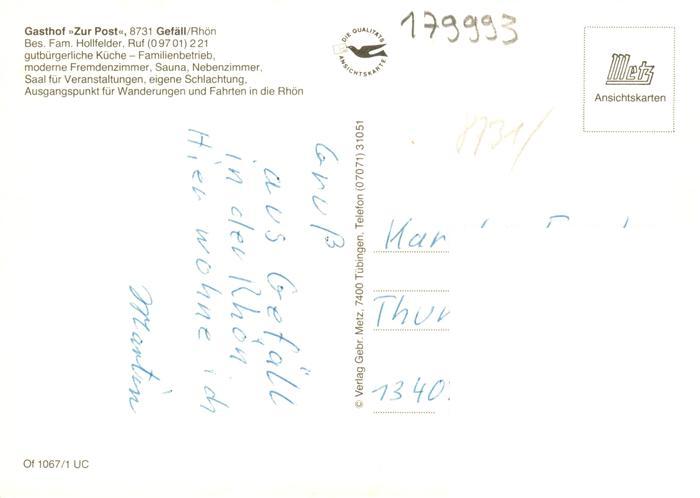 Gasthof »Zur Post«, 8731 Gefäll/Rhön
Bes. Fam. Hollfelder, Ruf (0 97 01) 2 21
gutbürgerliche Küche – Familienbetrieb,
moderne Fremdenzimmer, Sauna, Nebenzimmer,
Saal für Veranstaltungen, eigene Schlachtung,
Ausgangspunkt für Wanderungen und Fahrten in die Rhön
DIE QUALITÄTS
ANSICHTSKARTE
179993
Metz
Ansichtskarten
8731/
Gruß
aus Gefäll
in der Rhön
Hier wohne ich
Martin
© Verlag Gebr. Metz, 7400 Tübingen, Telefon (07071) 31051
Kar
Thur
1340
Of 1067/1 UC